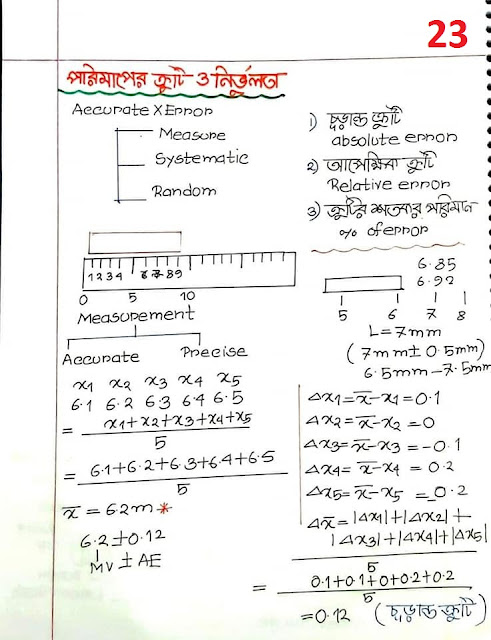 23
পরিমাপের ত্রুটি ও নির্ভুলতা
Accurate X Error
Measure
Systematic
Random
1) চূড়ান্ত ত্রুটি
absolute error
2) আপেক্ষিক ত্রুটি
Relative error
3) ত্রুটির শতকরা পরিমান
% of error
1 2 3 4 6 7 8 9
0 5 10
Measurement
Accurate Precise
6.85
6.92
5 6 7 8
L = 7mm
(7mm ± 0.5mm)
6.5mm - 7.5mm
x1 x2 x3 x4 x5
6.1 6.2 6.3 6.4 6.5
= x1+x2+x3+x4+x5
5
= 6.1+6.2+6.3+6.4+6.5
5
x̄ = 6.2m *
6.2 ± 0.12
MV ± AE
Δx1 = x̄-x1 = 0.1
Δx2 = x̄-x2 = 0
Δx3 = x̄-x3 = -0.1
Δx4 = x̄-x4 = 0.2
Δx5 = x̄-x5 = 0.2
Δx̄ = |Δx1|+|Δx2|+
|Δx3|+|Δx4|+|Δx5|
5
= 0.1+0.1+0+0.2+0.2
5
= 0.12 (চূড়ান্ত ত্রুটি)